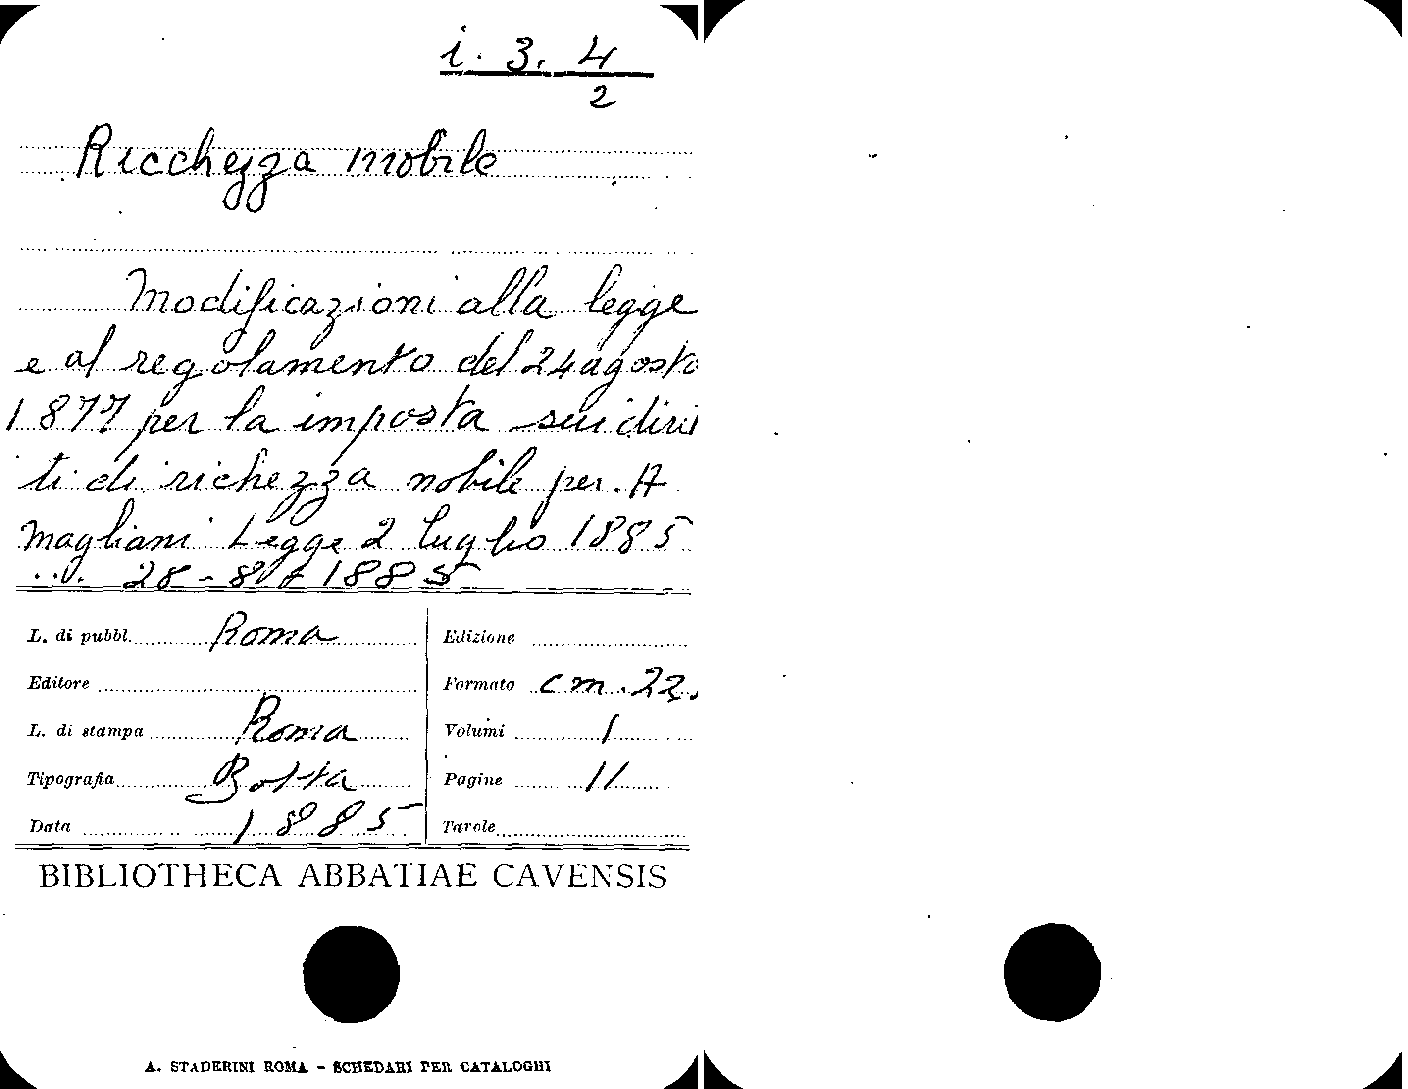 i. 3. 4
2
Ricchezza mobile
Modificazioni alla legge
e al regolamento del 24 agosto
1877 per la imposta sui diri
ti di richezza nobile per. A
Magliani Legge 2 luglio 1885
28 - 8 1885
L. di pubbl. Roma
Editore
L. di stampa Roma
Tipografia Botta
Data 1885
Edizione
Formato cm. 22.
Volumi 1
Pagine 11
Tavole
BIBLIOTHECA ABBATIAE CAVENSIS
A. STADERINI ROMA - SCHEDARI PER CATALOGHI